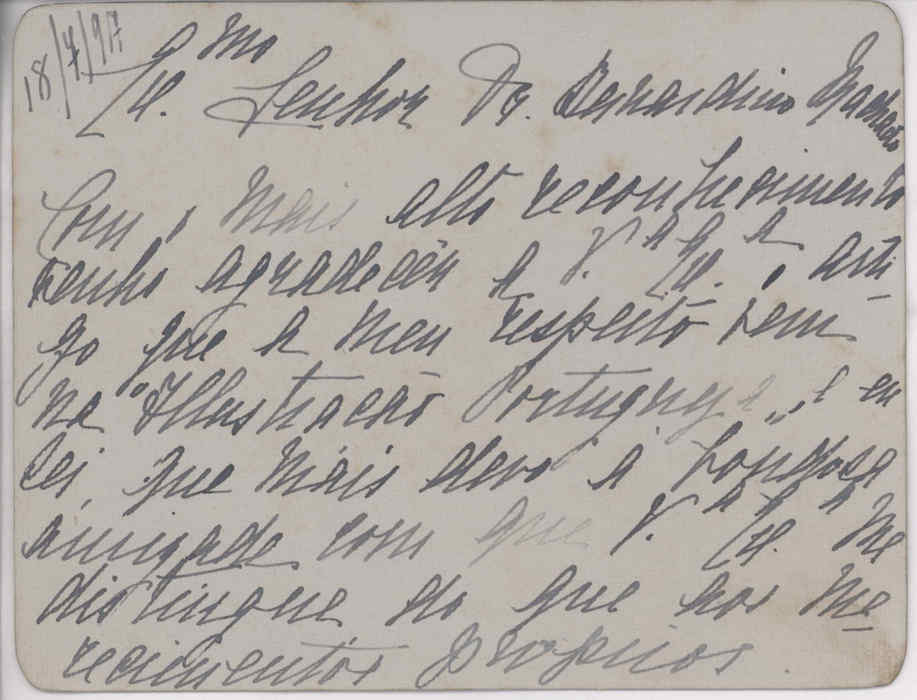 18/7/917
Ex.mo Senhor Dr. Bernardino Machado
Com o mais alto reconhecimento
venho agradecer a V. Ex.a o arti-
go que a meu respeito vem
na "Illustração Portugueza", e eu
sei, que mais devo á bondosa
amizade com que V. Ex.a me
distingue do que aos me-
recimentos proprios.